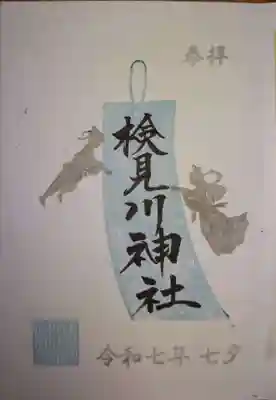 奉拝
検見川神社
令和七年 七夕